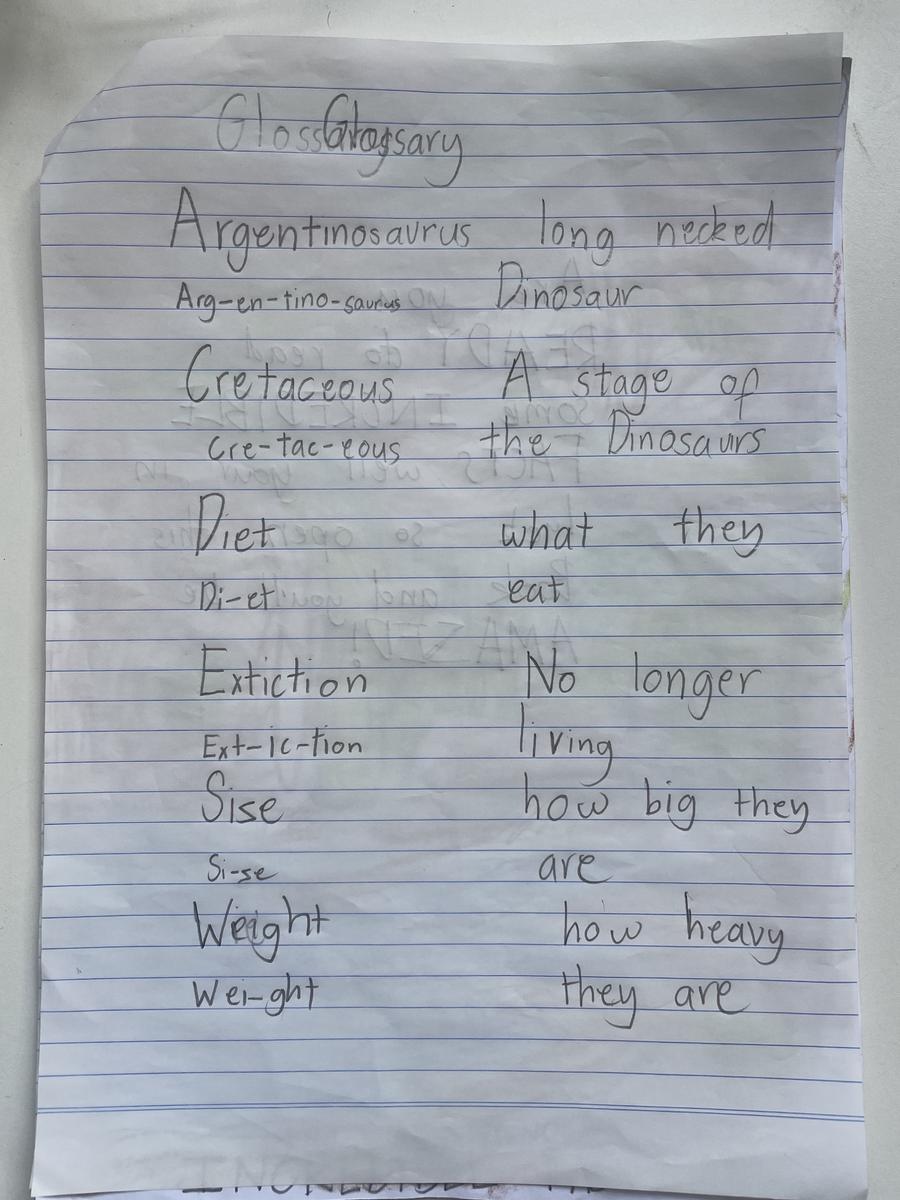 Glossary
Argentinosaurus long necked
Arg-en-tino-saurus Dinosaur
Cretaceous A stage of
Cre-tac-eous the Dinosaurs
Diet what they
Di-et eat
Extiction No longer
Ext-ic-tion living
Sise how big they
Si-se are
Weight how heavy
Wei-ght they are